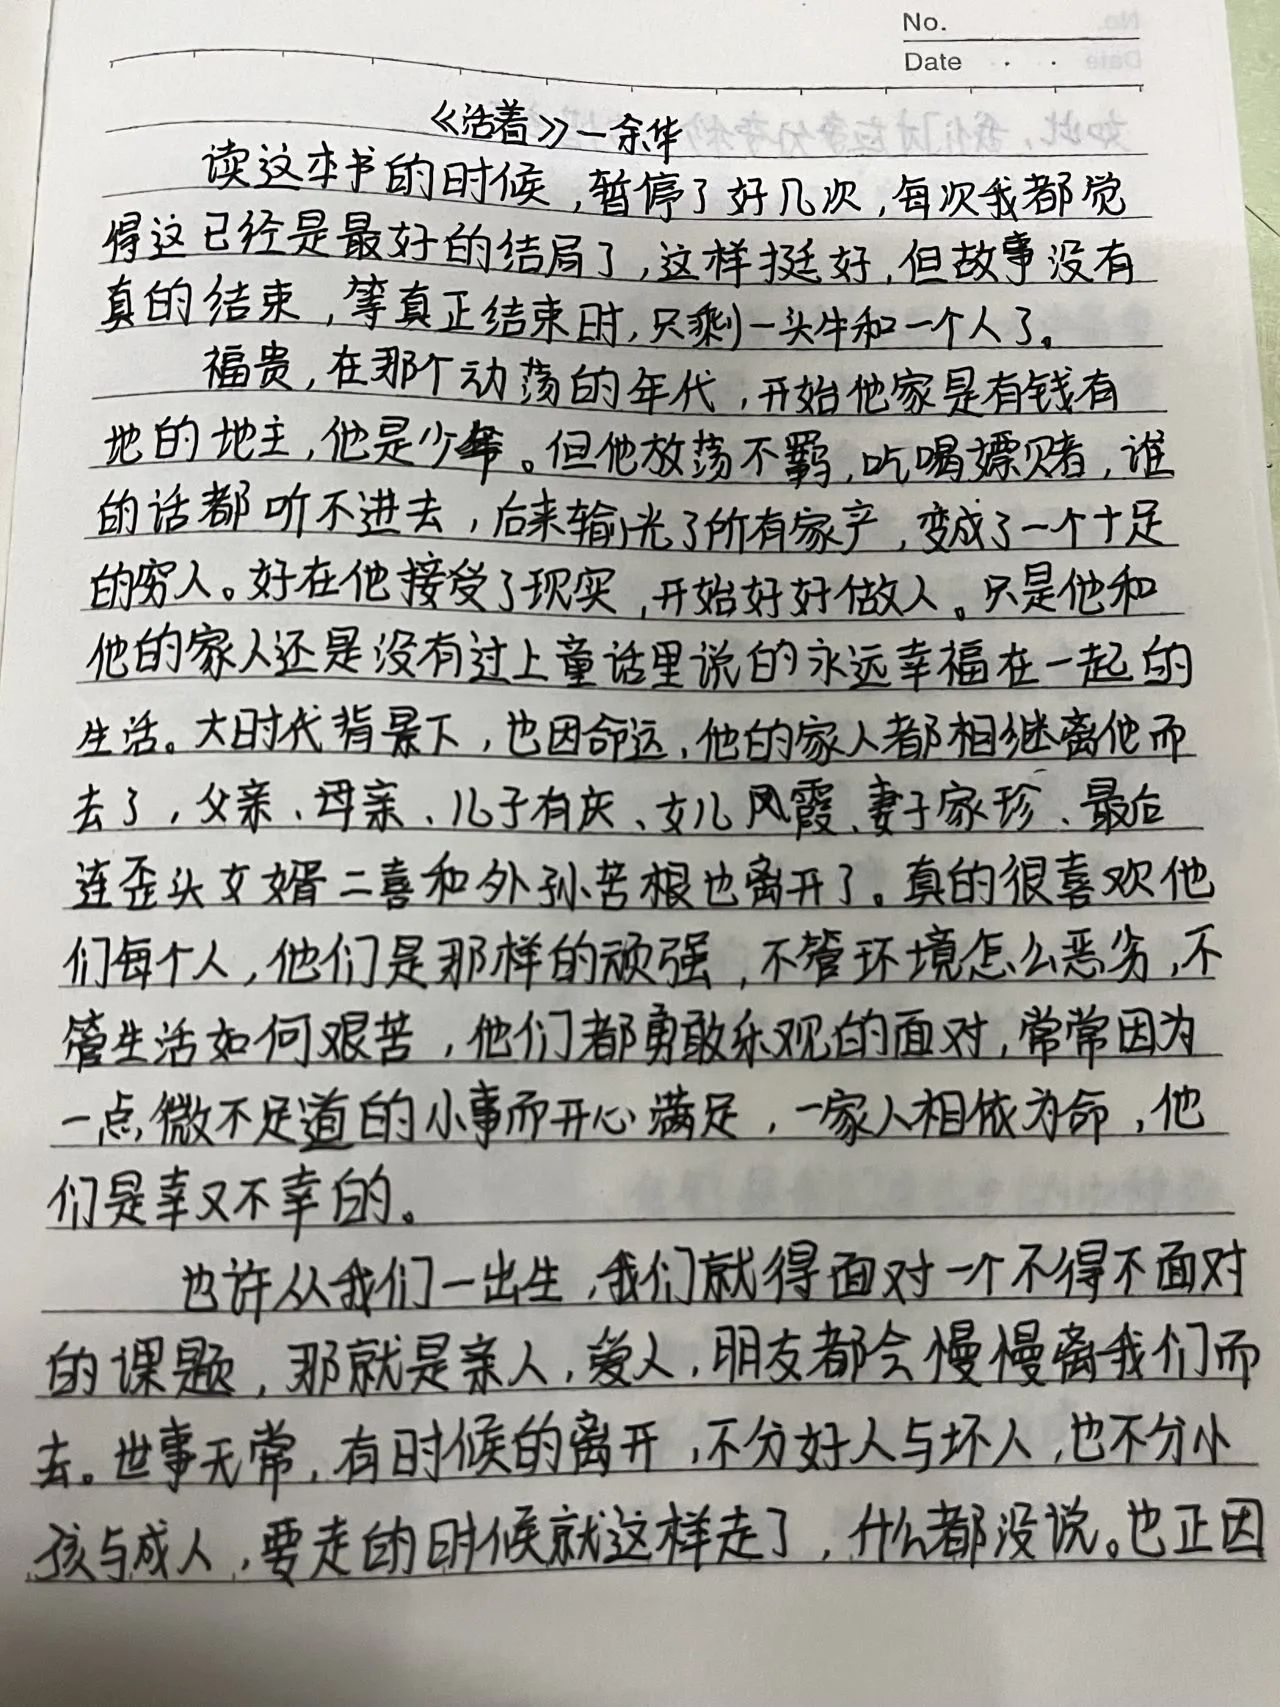 No.
Date
《活着》—余华
读这本书的时候，暂停了好几次，每次我都觉
得这已经是最好的结局了，这样挺好，但故事没有
真的结束，等真正结束时，只剩一头牛和一个人了。
福贵，在那个动荡的年代，开始他家是有钱有
地的地主，他是少爷。但他放荡不羁，吃喝嫖赌，谁
的话都听不进去，后来输光了所有家产，变成了一个十足
的穷人。好在他接受了现实，开始好好做人。只是他和
他的家人还是没有过上童话里说的永远幸福在一起的
生活。大时代背景下，也因命运，他的家人都相继离他而
去了，父亲、母亲、儿子有庆、女儿凤霞、妻子家珍、最后
连歪头女婿二喜和外孙苦根也离开了。真的很喜欢他
们每个人，他们是那样的顽强，不管环境怎么恶劣，不
管生活如何艰苦，他们都勇敢乐观的面对，常常因为
一点微不足道的小事而开心满足，一家人相依为命，他
们是幸又不幸的。
也许从我们一出生，我们就得面对一个不得不面对
的课题，那就是亲人，爱人，朋友都会慢慢离我们而
去。世事无常，有时候的离开，不分好人与坏人，也不分小
孩与成人，要走的时候就这样走了，什么都没说。也正因